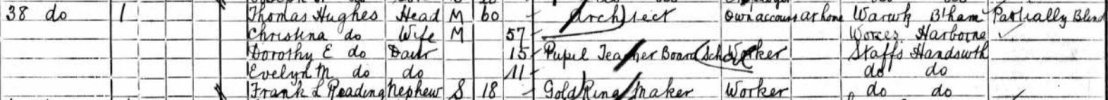 38 do 1 Thomas Hughes Head M 60 Architect Own account at home Warwk B'ham Partially Blind
Christina do Wife M 57 Worcs Harborne
Dorothy E do Daur 15 Pupil Teacher Board School Worker Staffs Handswth
Evelyn M do do 11 do do
Frank L Reading Nephew S 18 Gold Ring Maker Worker do do